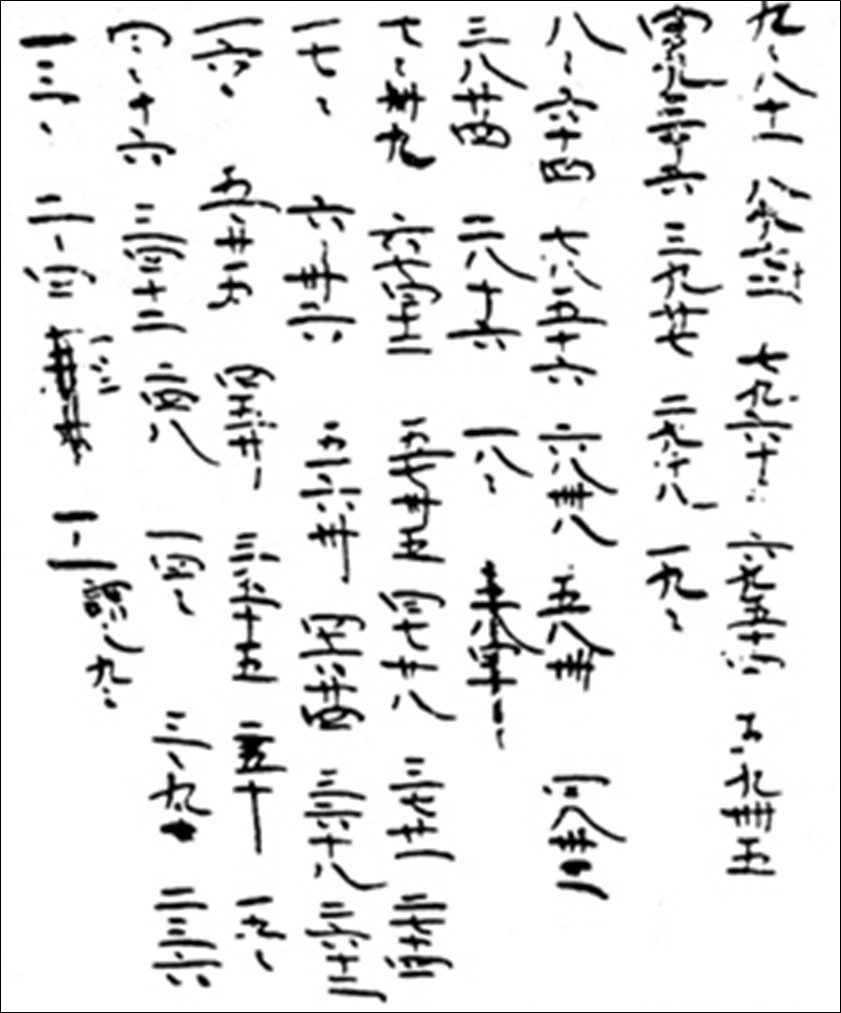 九〻八十一 八九 七九六十三 六九五十四 五九卌五
四九三十六 三九廿七 二九十八 一九〻
八〻六十四 七八五十六 六八卌八 五八卌 四八卅二
三八廿四 二八十六 一八〻
七〻卌九 六七四十二 五七卅五 四七廿八 三七廿一 二七十四
一七〻 六〻卅六 五六卅 四六廿四 三六十八 二六十二
一六〻 五〻廿五 四五廿〻 三五十五 二五十 一五〻
四〻十六 三四十二 二四八 一四〻 三〻九 二三六
一三〻 二〻四 一〻一